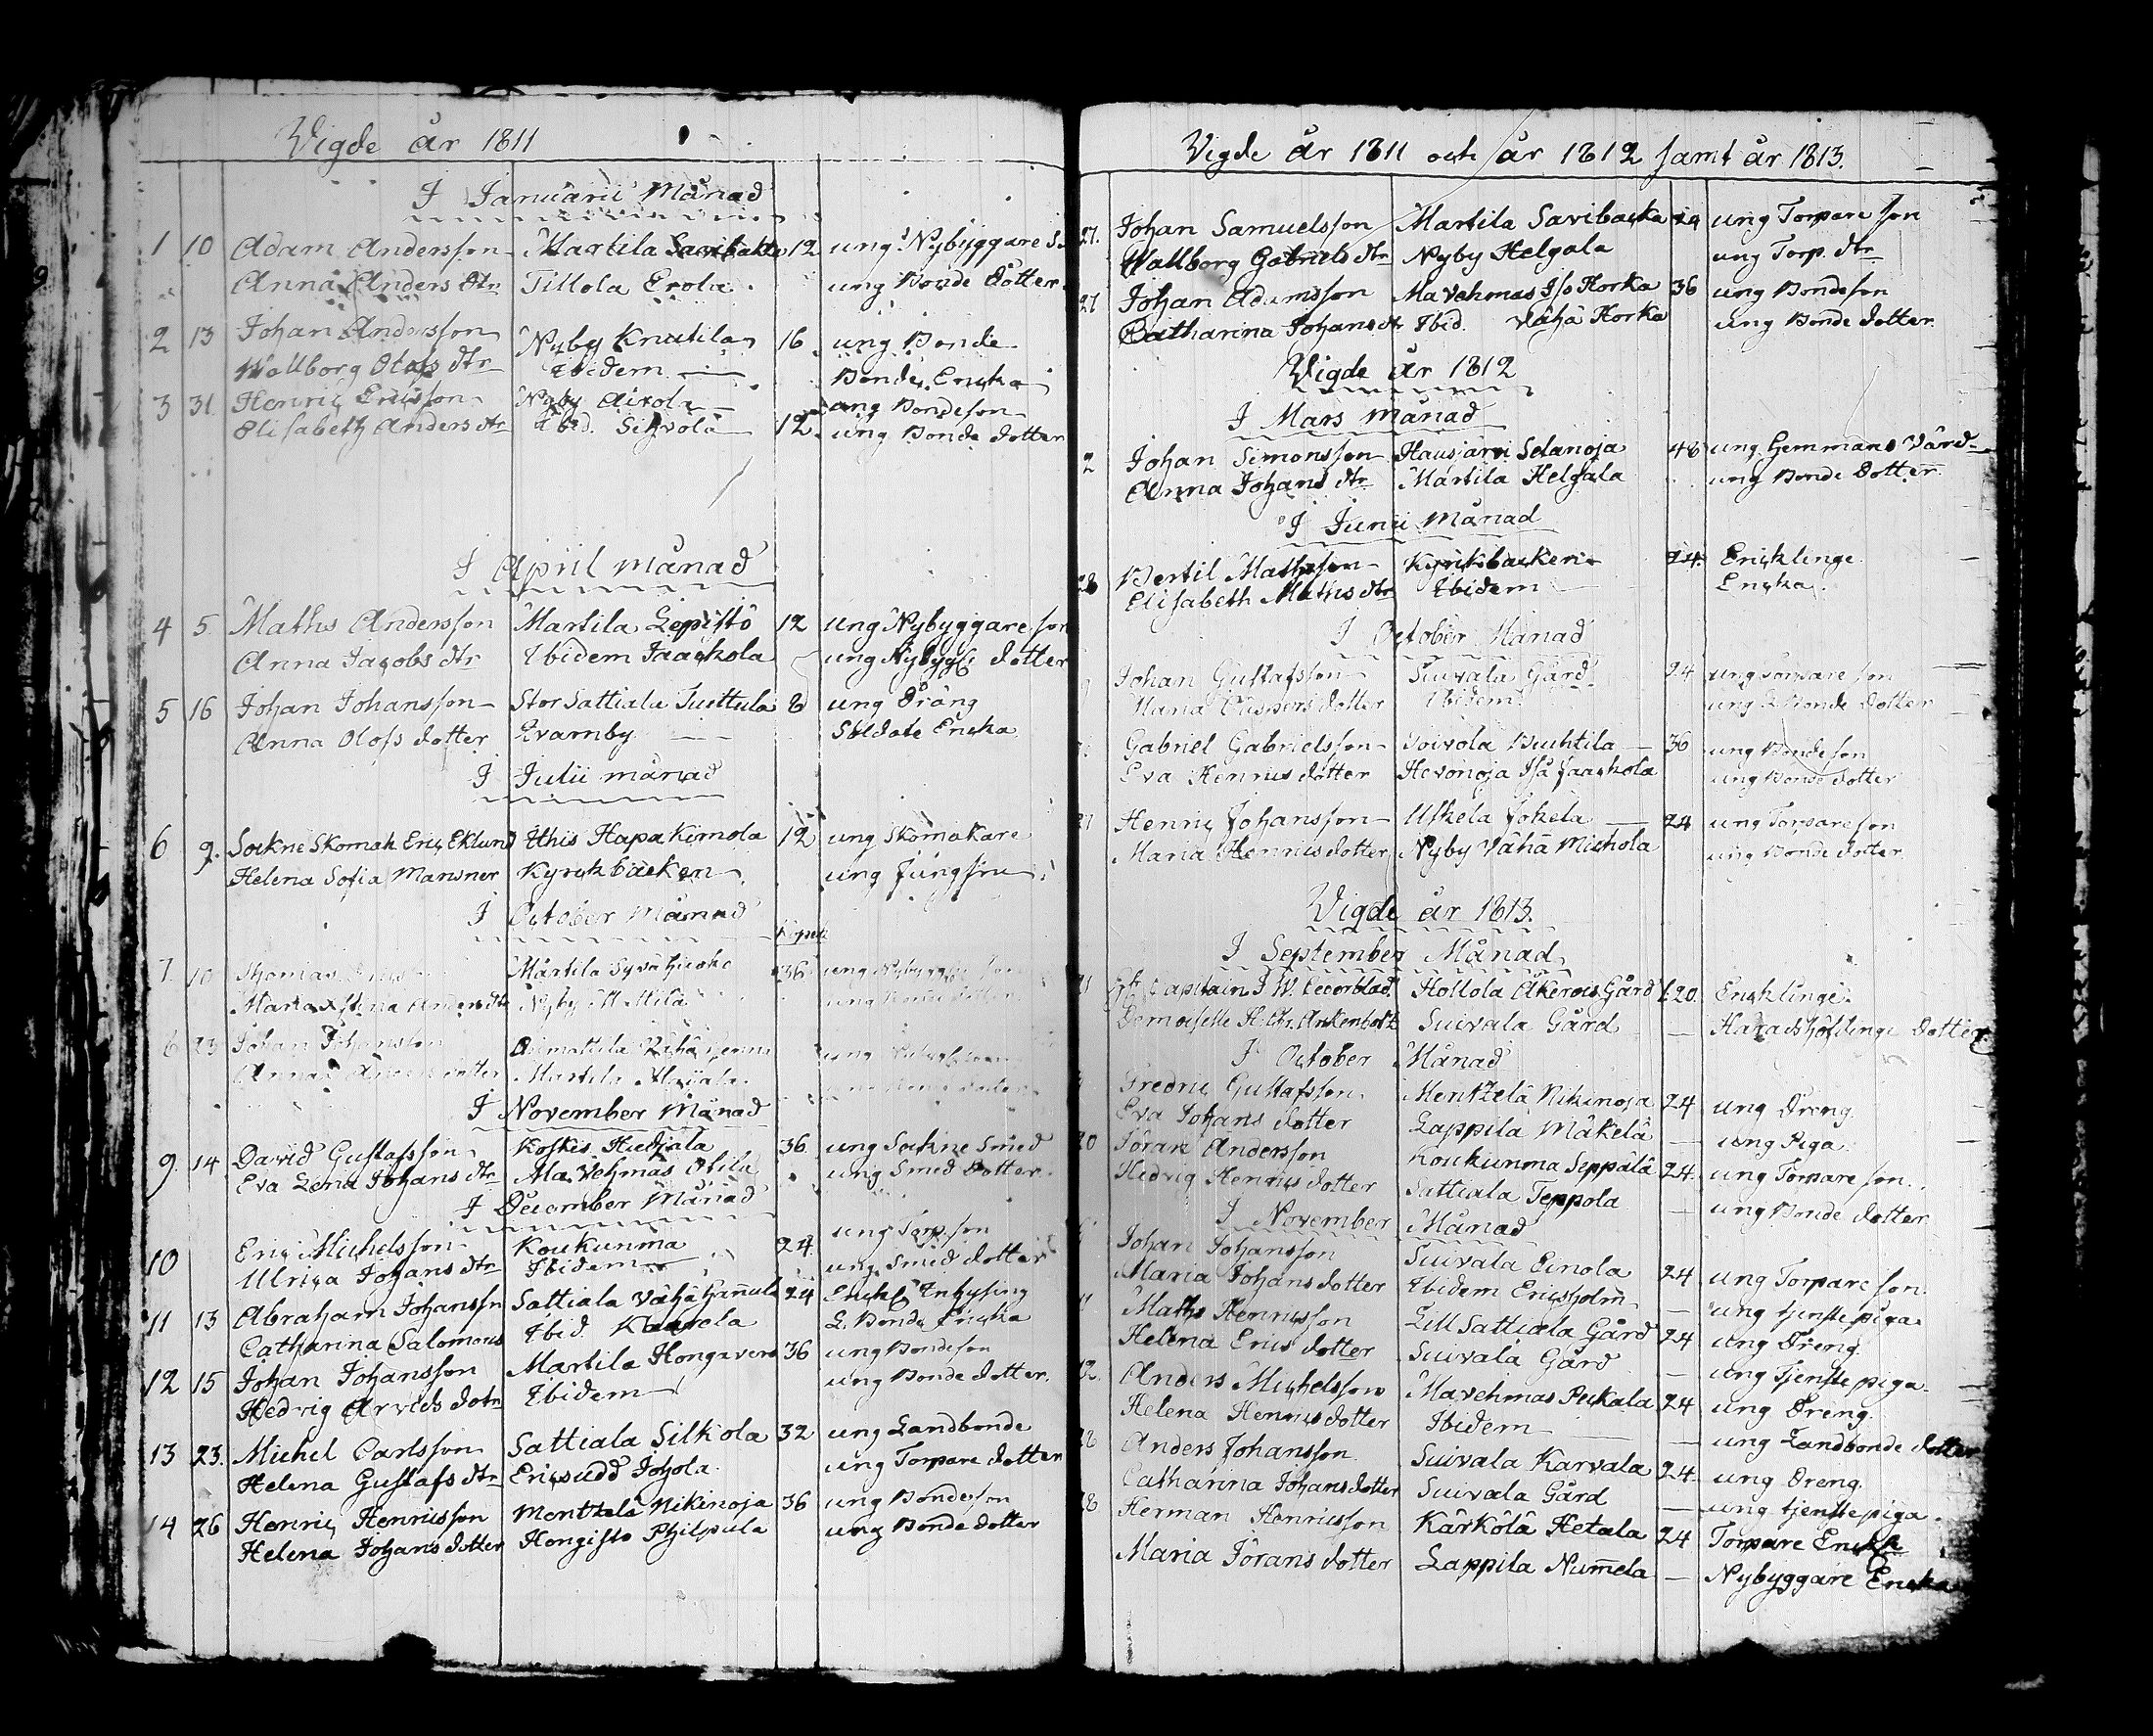 Vigde år 1811
I Januarii Månad
1 10 Adam Andersson Martila Savibakka 12 ung Nybyggare
Anna Anders dtr Tillola Erola ung Bonde dotter
2 13 Johan Andersson Nyby Knutila 16 ung Bonde
Wallborg Olofs dtr Ibidem Bonde Encka
3 31 Henric Ericsson Nyby Airola ung Bondeson
Elisabeth Anders dtr Ibid. Sihvola 12 ung Bonde dotter
I April månad
4 5 Maths Andersson Martila Lepistö 12 ung Nybyggare son
Anna Jacobs dtr Ibidem Jaackola ung dotter
5 16 Johan Johansson Stor Sattiala Tuittula 8 ung Dräng
Anna Olofs dotter Evarnby Soldate Encka
I Julii månad
6 9. Sockne Skomak Eric Eklund Ithis Hapakimola 12 ung Skomakare
Helena Sofia Mansner Kyrckbacken ung Jungfru
I October Månad
7. 10 Thomas Martila 36
Maria Stina Anders dtr Nyby Mattila
23 Johan Johansson
Anna dotter Martila
I November Månad
9. 14 David Gustafsson Koskis Hiedjala 36 ung Sockne Smed
Eva Lena Johans dtr Ma. Vehmas Otila ung Smed dotter
I December Månad
10 Eric Michelsson Koukunma 24 ung Torp. son
Ulrica Johans dtr Ibidem ung Smed dotter
11 13 Abraham Johansson Sattiala Vähä Hannula 24 Enckl Inhysing
Catharina Salomons Ibid. Kaarela L. Bonde Encka
12 15 Johan Johansson Martila Hongavero 36 ung Bondeson
Hedvig Arvids dotr Ibidem ung Bonde dotter
13 23. Michel Carlsson Sattiala Silkola 32 ung Landbonde
Helena Gustafs dtr Ericsudd Johola ung Torpare dotter
14 26 Henric Henricsson Mentzelä Nikinoja 36 ung Bondeson
Helena Johans dotter Hongisto Philpula ung Bonde dotter
Vigde År 1811 och år 1812 samt år 1813.
27. Johan Samuelsson Martila Savibacka 24 ung Torpare son
Wallborg Gabriels dtr Nyby Helgala ung Torp. dtr
27 Johan Adamsson Ma Vehmas Iso Horka 36 ung Bondeson
Catharina Johans dtr Ibid. Vähä Horka ung Bonde dotter
Vigde År 1812
I Mars månad
2 Johan Simonsson Hausjärvi Selänoja 48 ung Hemmans Värd
Anna Johans dtr Martila Helgala ung Bonde Dotter
I Junii Månad
28 Bertil Mathsson Kyrckbacken 24. Encklinge
Elisabeth Maths dtr Ibidem Encka
I October Månad
Johan Gustafsson Suivala Gård 24 ung Torpare son
Maria Caspers dotter Ibidem ung Bonde dotter
Gabriel Gabrielsson Toivola Buchtila 36 ung Bondeson
Eva Henrics dotter Hevonoja Iså Jaackola ung Bonde dotter
27 Henric Johansson Uskela Jokela 24 ung Torpare son
Maria Henrics dotter Nyby Vähä Michola ung Bonde dotter
Vigde år 1813.
I September Månad
Capitain J. W. Hollola Åkerois Gård 1:20 Encklinge
Demoiselle Suivala Gård Häradshöfdinge Dotter
I October Månad
Fredric Gustafsson Mentzelä Nikinoja 24 ung Dreng
Eva Johans dotter Lappila Mäkelä ung Piga
20 Jöran Andersson Koukunma Seppälä 24 ung Torpare son
Hedvig Henrics dotter Sattiala Teppola ung Bonde dotter
I November Månad
Johan Johansson Suivala Einola 24 ung Torpare son
Maria Johans dotter Ibidem Ericsholm ung tjenste piga
Maths Henricsson Lill Sattiala Gård 24 ung Dreng
Helena Erics dotter Suivala Gård ung Tjenste piga
12. Anders Michelsson Mavehmas Peckala 24 ung Dreng
Helena Henrics dotter Ibidem ung Landbonde dotter
28 Anders Johansson Suivala Karvala 24 ung Dreng
Catharina Johans dotter Suivala Gård ung tjenste piga
28 Herman Henricsson Kärkölä Hetala 24 Torpare Enckl
Maria Jörans dotter Lappila Nummela Nybyggare Encka